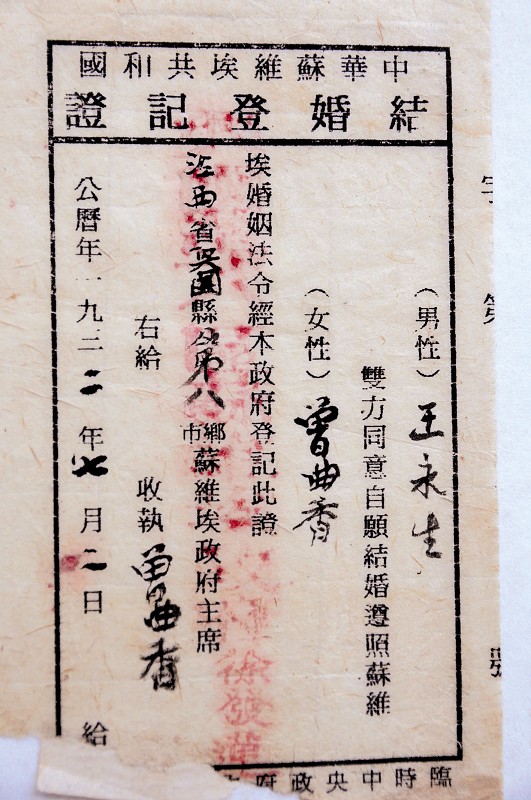 中華蘇維埃共和國
結婚登記證
字第 號
(男性)王永生
雙方同意自願結婚遵照蘇維
(女性)曾曲香
埃婚姻法令經本政府登記此證
江西省興國縣 第八 鄉市 蘇維埃政府主席
徐發
右給 收執 曾曲香
公曆年一九三二年七月二日 給
臨時中央政府